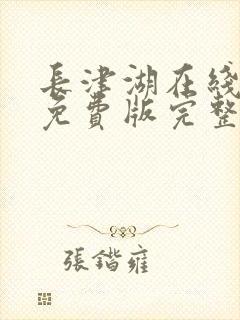 長津湖在綫
免費版完整
張鍇雍